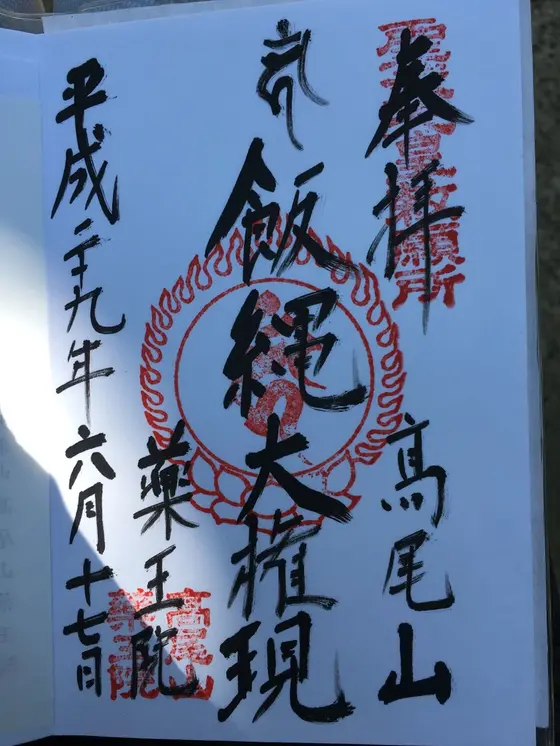 奉拝
高尾山
飯縄大権現
薬王院
平成二十九年六月十七日